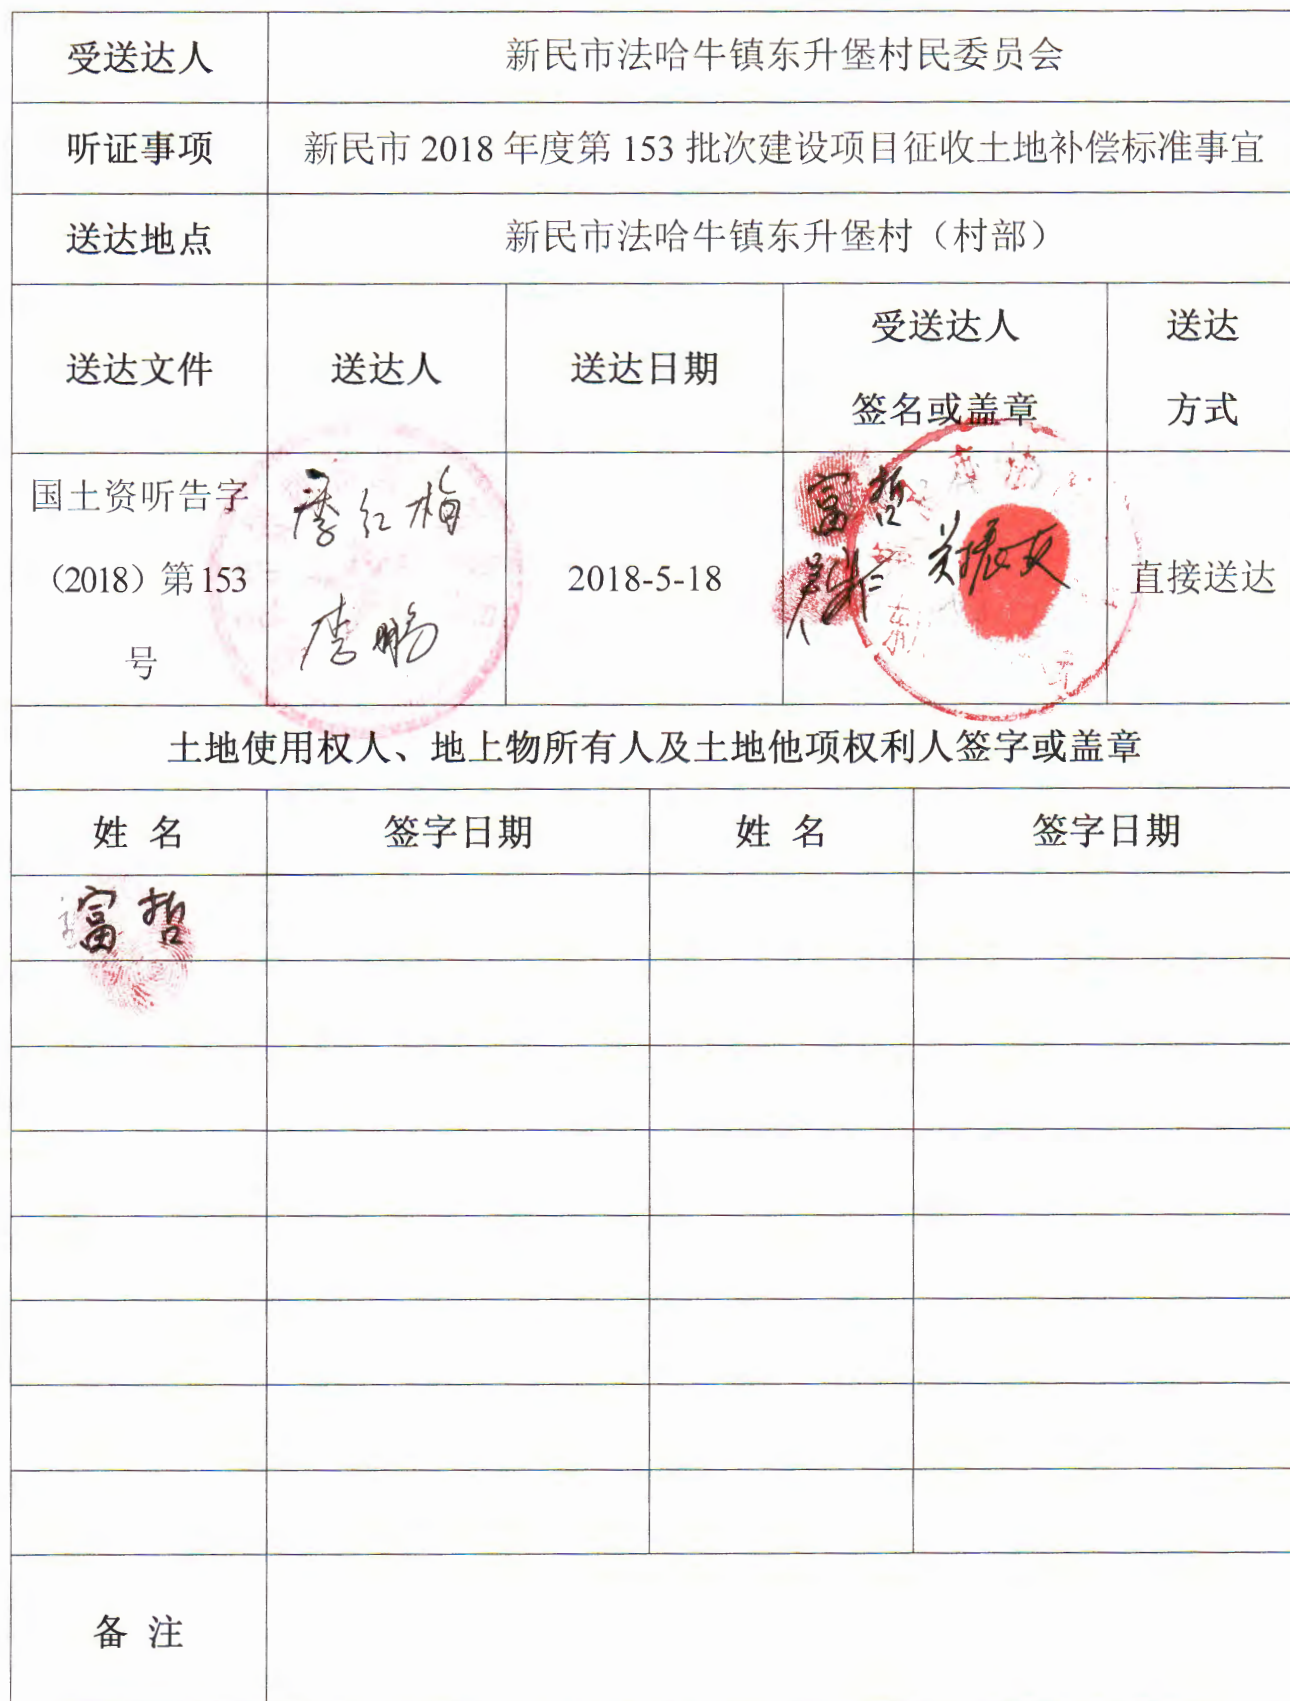 受送达人 新民市法哈牛镇东升堡村民委员会
听证事项 新民市 2018 年度第 153 批次建设项目征收土地补偿标准事宜
送达地点 新民市法哈牛镇东升堡村（村部）
送达文件 送达人 送达日期 受送达人 签名或盖章 送达 方式
国土资听告字
（2018）第 153
号
季红梅
李鹏
2018-5-18
富哲
直接送达
土地使用权人、地上物所有人及土地他项权利人签字或盖章
姓 名 签字日期 姓 名 签字日期
富哲
备 注